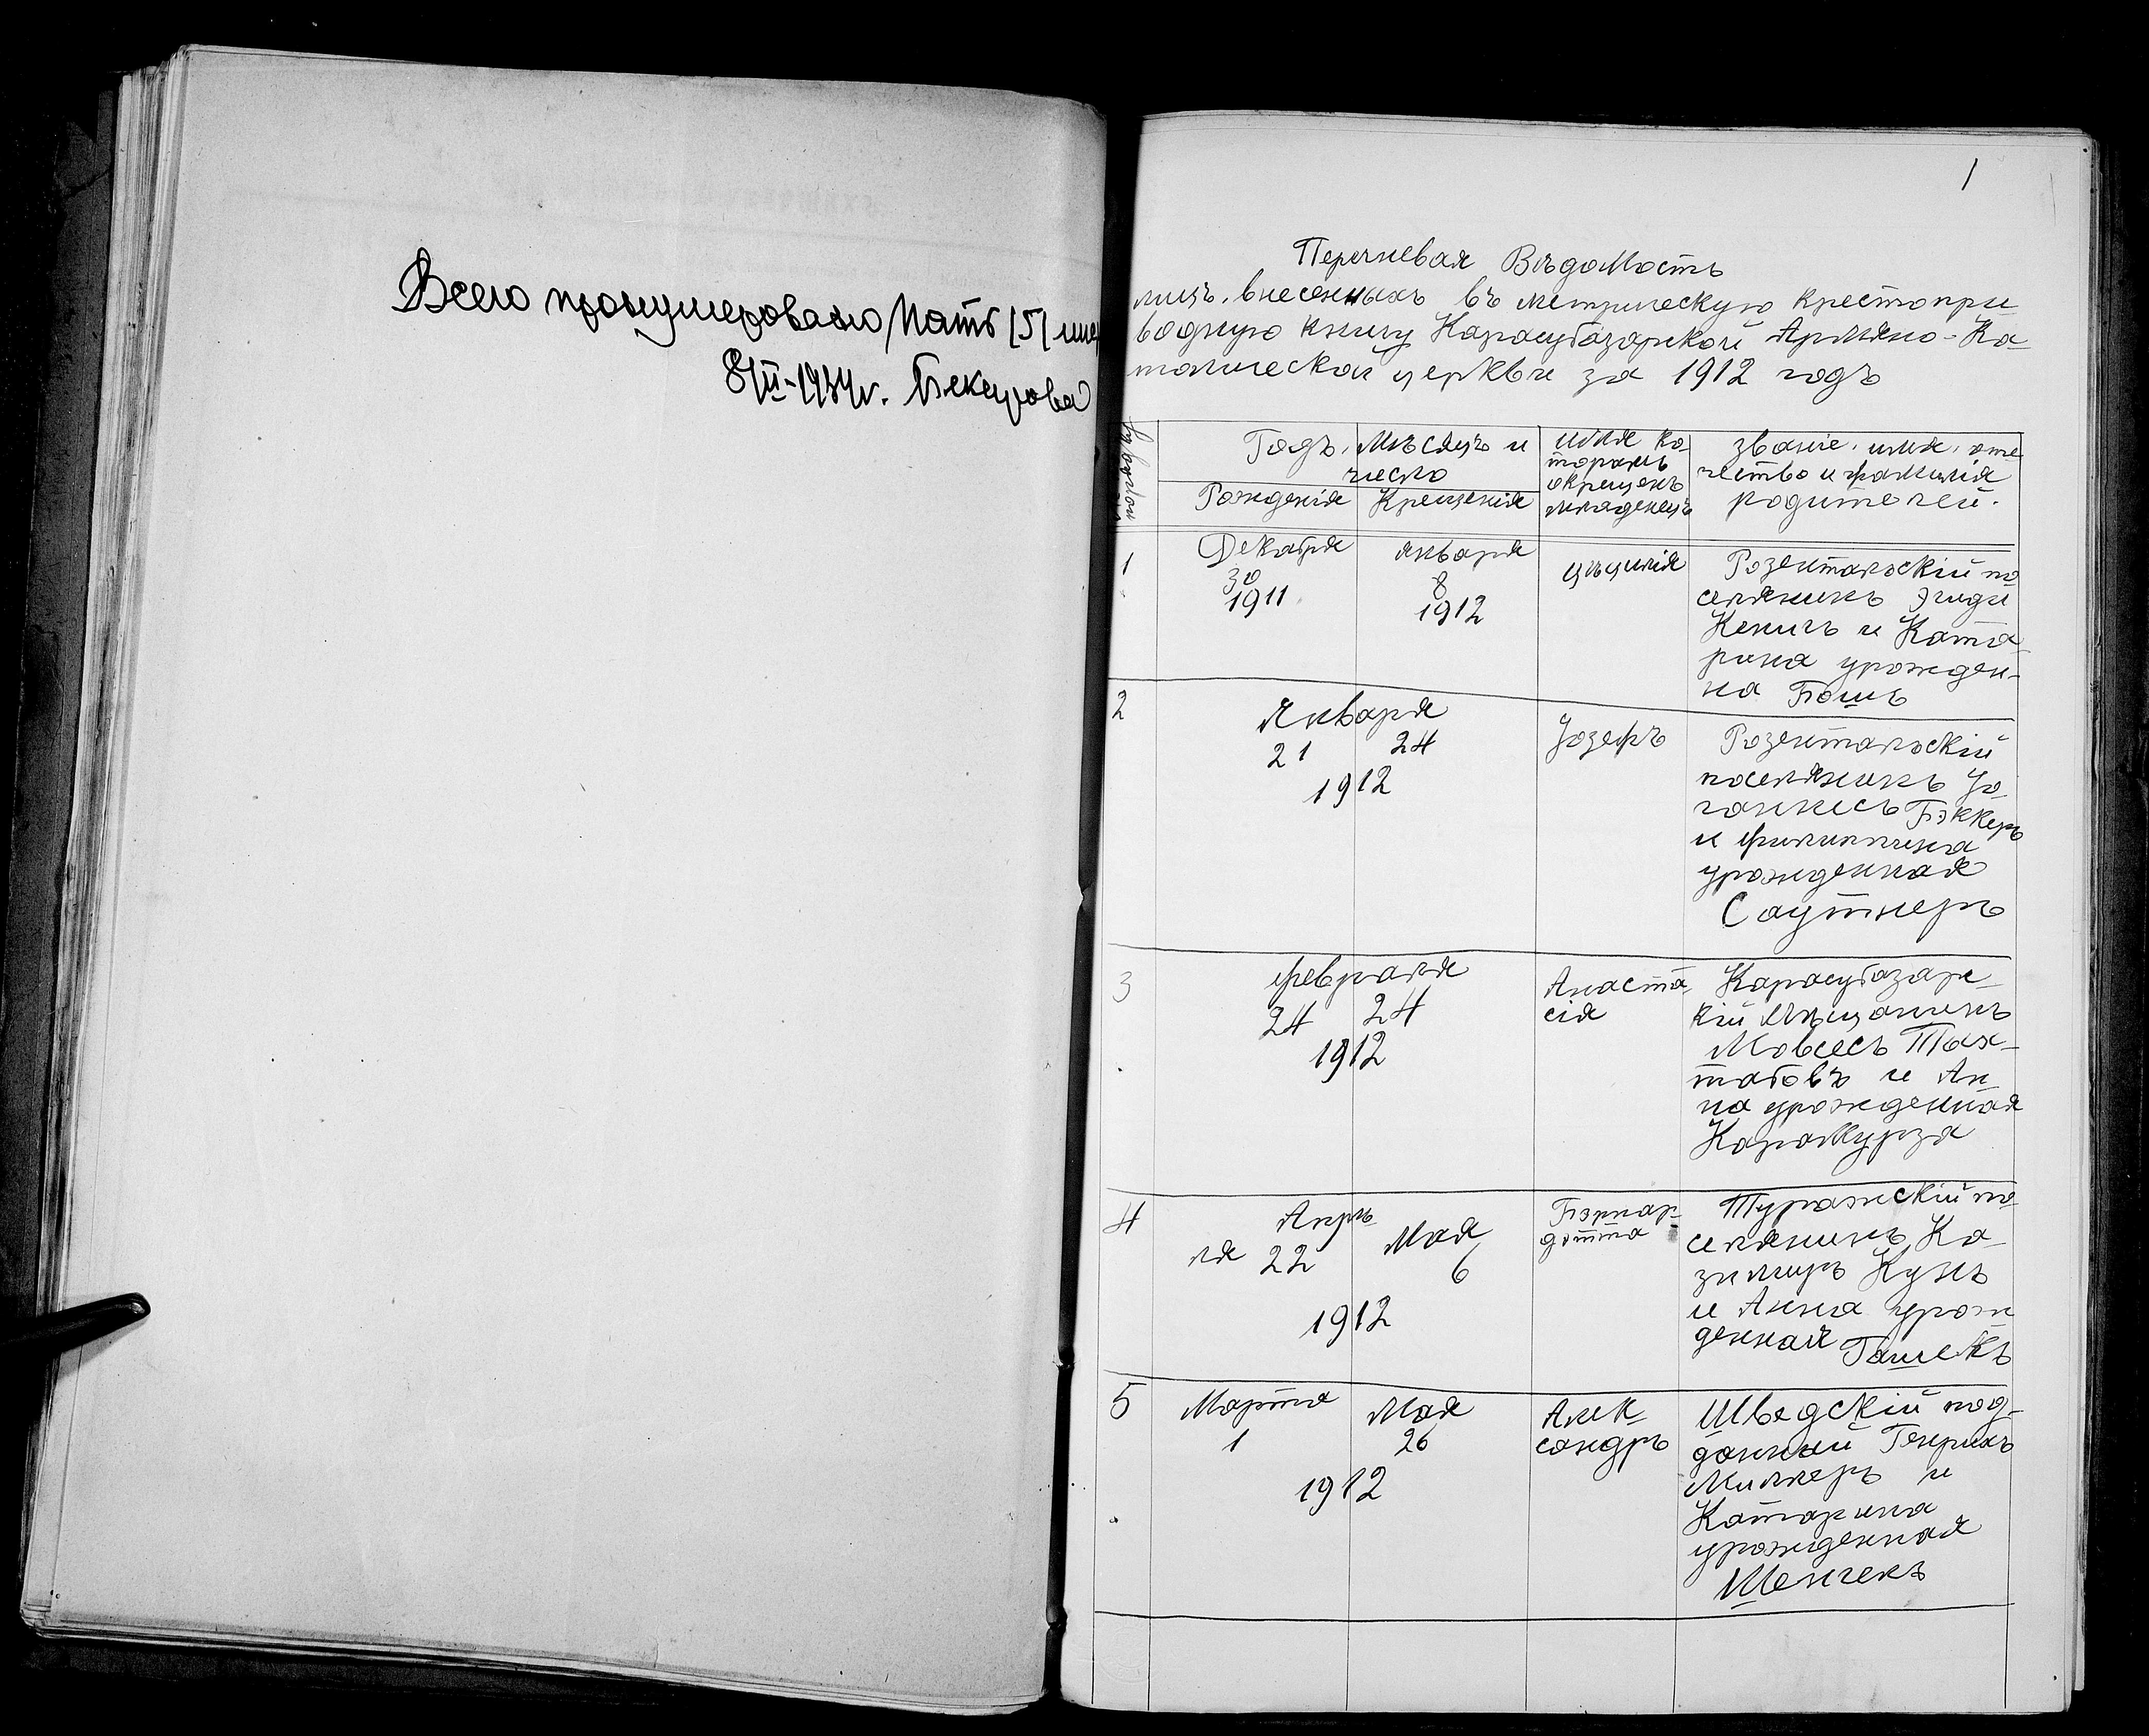 Всего пронумеровано пять (5) лис
Бекирова
1
Перечневая Вѣдомость
лицъ, внесенныхъ въ метрическую крестопри
водную книгу Карасубазарской Армяно-Ка-
толической церкви за 1912 годъ
Годъ, Мѣсяцъ и
число
Рожденія Крещенія
имя ко-
торымъ
окрещенъ
младенецъ
званіе, имя, оте-
чество и фамилія
родителей.
1
Декабря
30
1911
января
8
1912
Цецилія
Розентальскій по
селянинъ Эгиди
Кенигъ и Ката
рина урожден-
на Бошъ
2
Января
21 24
1912
Іозефъ
Розентальскій
поселянинъ Іо-
ганнесъ Бэккеръ
и филиппина
урожденная
Саутнеръ
3
февраля
24 24
1912
Анаста-
сія
Карасубазарс-
кій Мѣщанинъ
Мовсесъ Тах-
таовъ и Ан
на урожденная
Карамурза
4
Апрѣ-
ля 22
Мая
6
1912
Бернар-
детта
селянинъ Ка-
зимиръ Кунъ
и Анна урож
денная Гашекъ
5
Марта
1
Мая
26
1912
Алек-
сандръ
Шведскій под-
данный Генрихъ
Миллеръ и
Катарина
урожденная